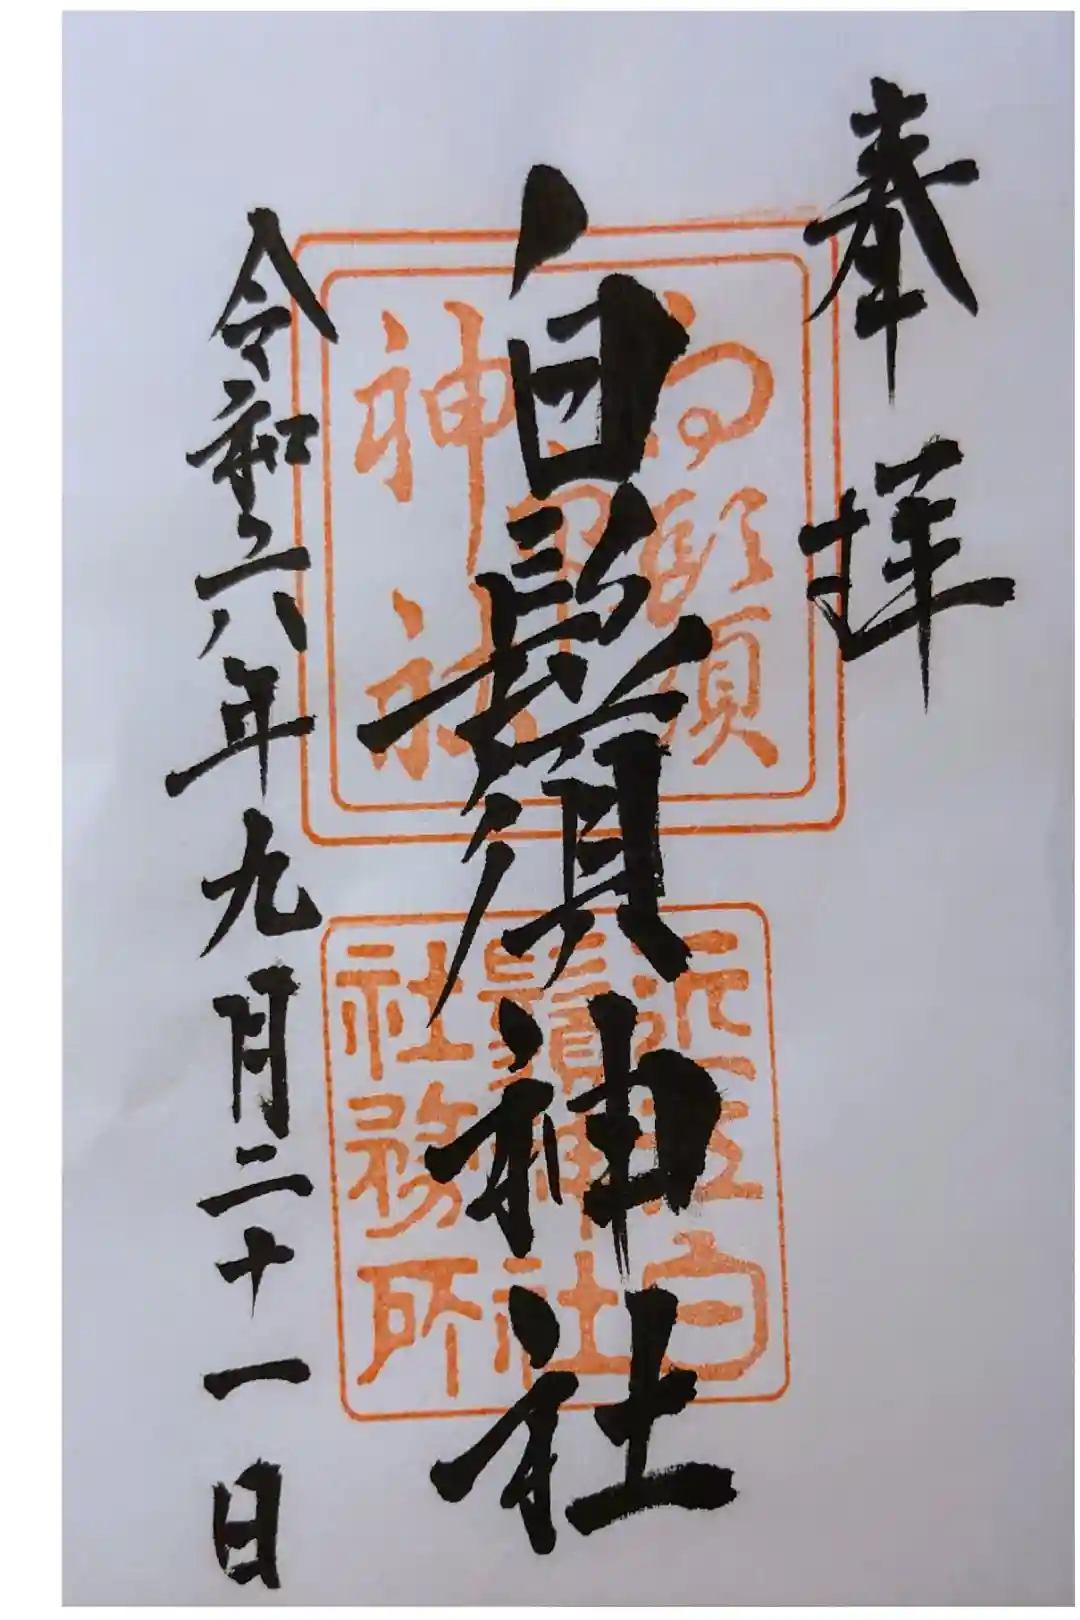 奉拝
白鬚神社
令和六年九月二十一日
白鬚
神社
近江白
鬚神社
社務所